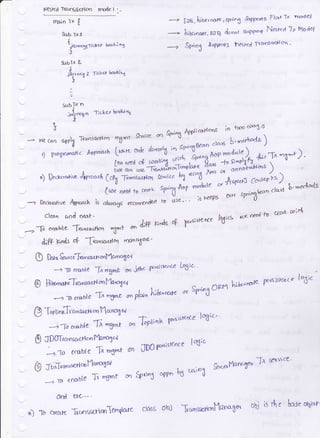 Nested Transaction model :-
main Tx {
→ EJB, hibernate, spring supports Flat Tx model
Sub Tx1
→ hibernate, EJB doesnot support Nested Tx Model
{
Ticket booking
→ Spring supports Nested Transaction.
}
Sub Tx 2
{
2 Ticket booking
}
Sub Tx n
{
Ticket booking
}
→ we can apply Transaction mgmt Service on Spring Applications in two ways
1) programatic Approach (write code directly in Spring Bean class b.methods)
(no need of working with Spring Aop module)
we can use Transaction Template class to simplify this Tx mgmt).
2) Declarative Approach (Cfg Transaction service by using Xml or annotations)
(we need to work Spring Aop module or AspectJ concepts)
→ Declarative Approach is always recommended to use... it keeps our spring bean class b.methods
clean and neat.
→ To enable Transaction mgmt on diff kinds of persistence logics we need to work with
diff kinds of Transaction managers.
① DataSourceTransactionManager
→ To enable Tx mgmt on jdbc persistence logic.
② HibernateTransactionManager
→ To enable Tx mgmt on plain hibernate or Spring ORM hibernate persistence logic
③ TopLinkTransactionManager
→ To enable Tx mgmt on Toplink persistence logic.
④ JDOTransactionManager
→ To enable Tx mgmt on JDO persistence logic
⑤ JtaTransactionManager
→ To enable Tx mgmt on Spring appn by using Tx service.
and etc...
*) To create TransactionTemplate class obj TransactionManager obj is the base object